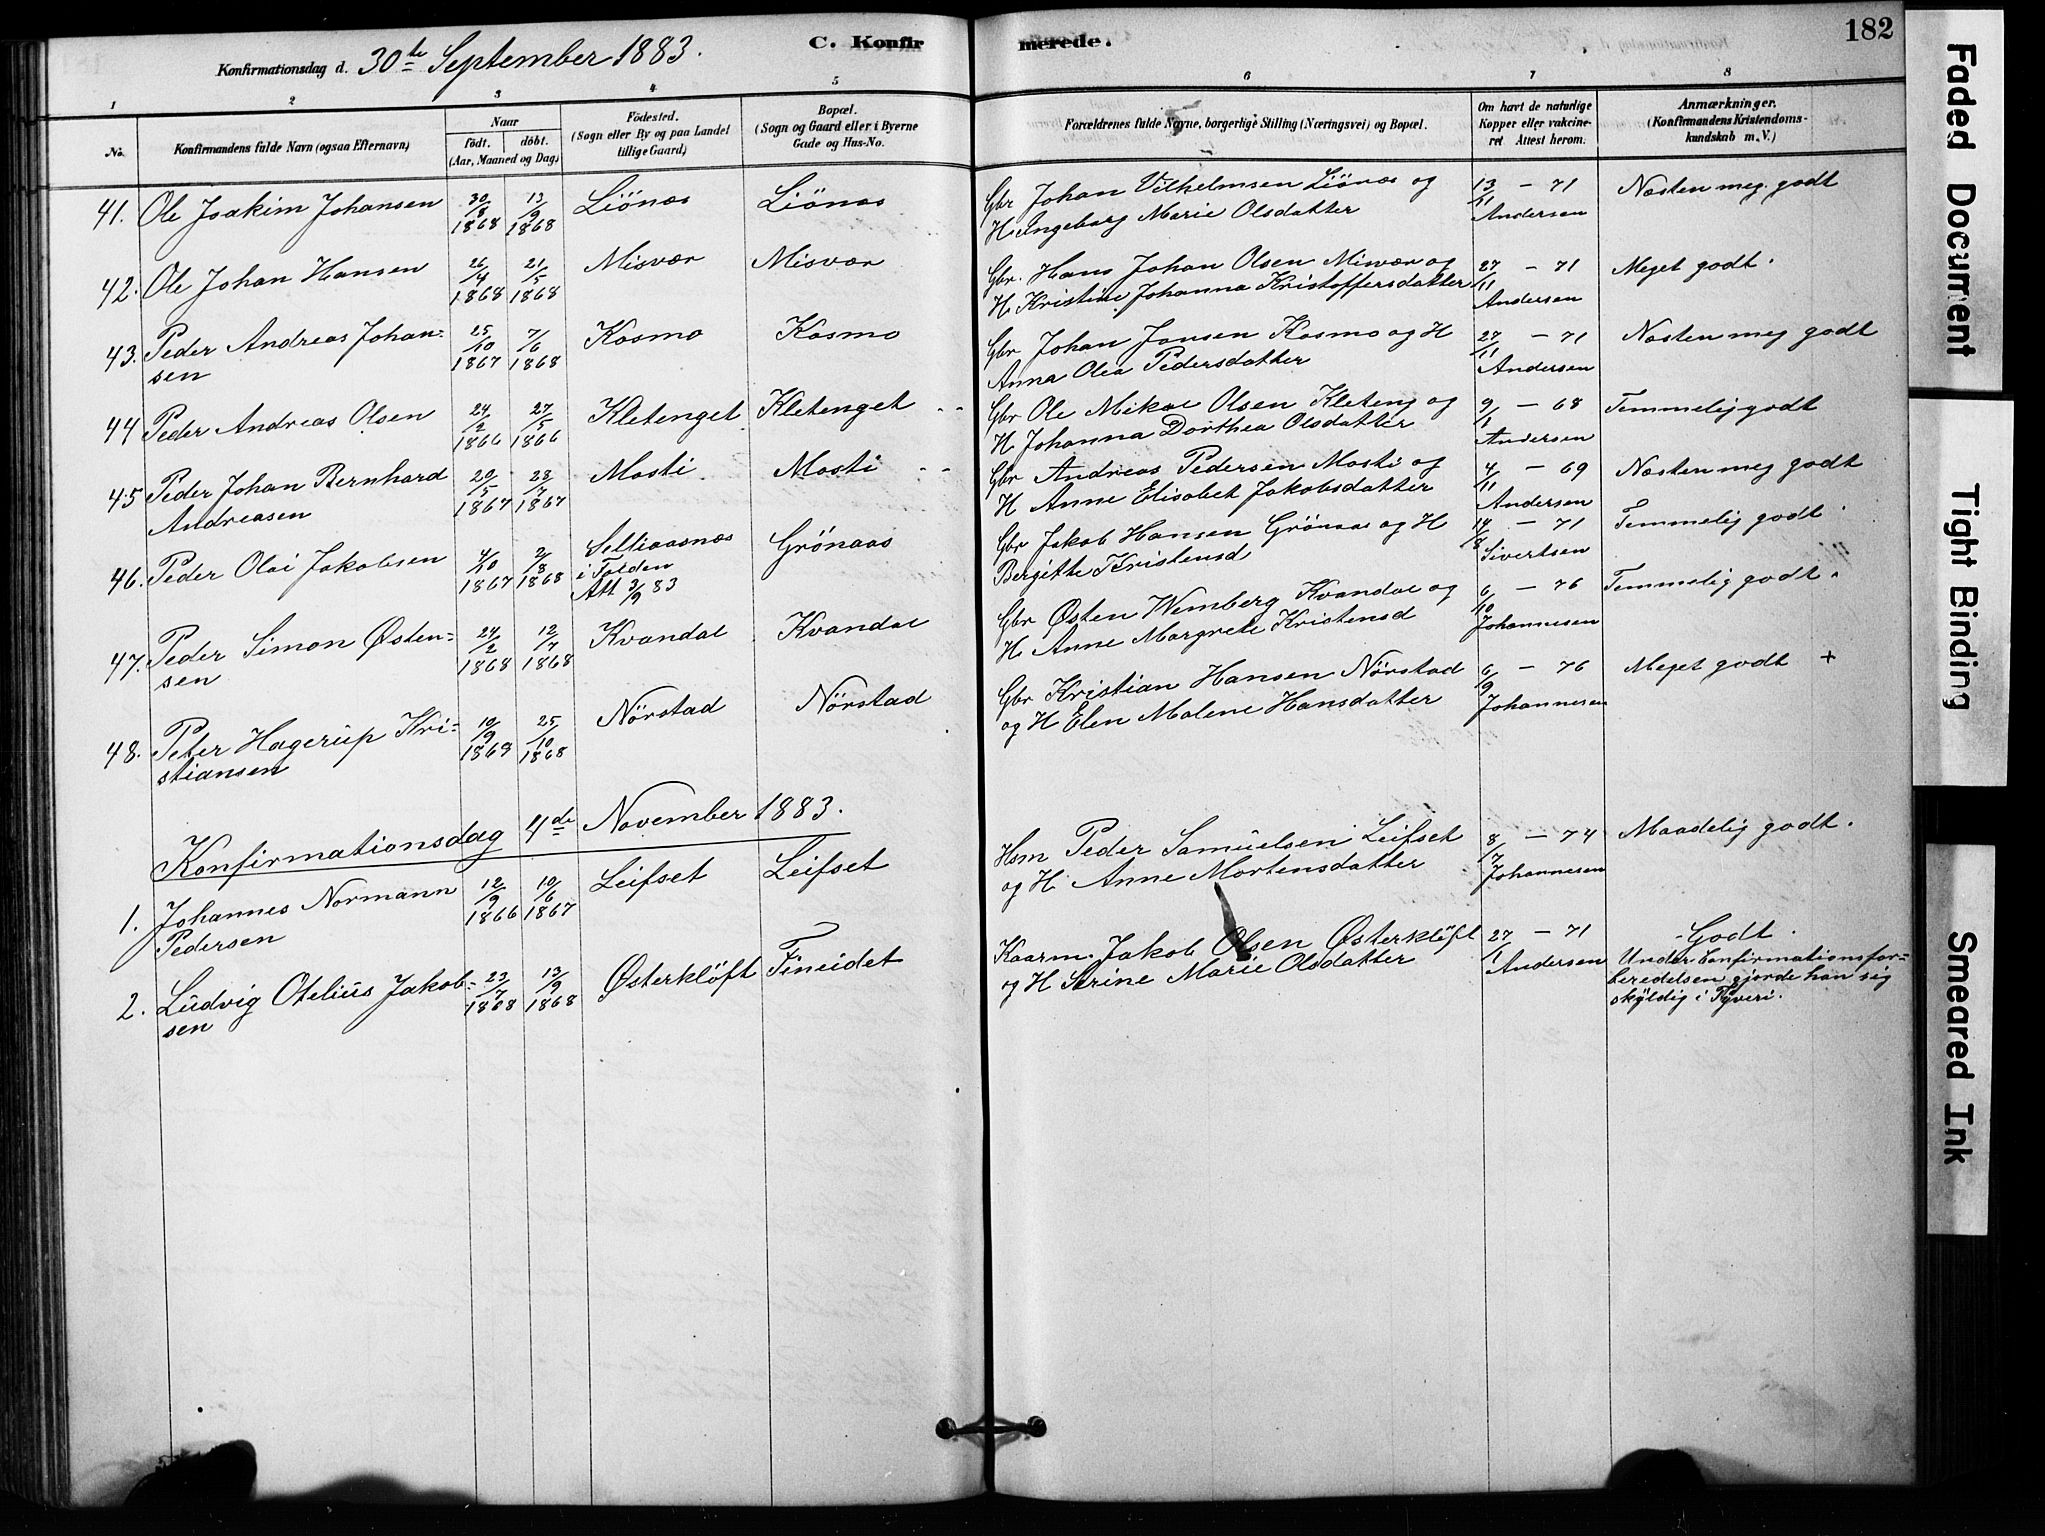 182
C. Konfirmerede.
Konfirmationsdag d. 30te September 1883.
1 2 3 4 5 6 7 8
No.
Konfirmandens fulde Navn (ogsaa Efternavn)
Naar
födt. döbt.
(Aar, Maaned og Dag)
Födested.
(Sogn eller By og paa Landet
tillige Gaard)
Bopæl.
(Sogn og Gaard eller i Byerne
Gade og Hus-No.
Forældrenes fulde Navne, borgerlige Stilling (Næringsvei) og Bopæl.
Om havt de naturlige
Kopper eller vakcine-
ret Attest herom.
Anmærkninger.
(Konfirmandens Kristendoms-
kundskab m.V.)
41. Ole Joakim Johansen 30/8 1868 13/9 1868 Liönæs Liönæs Gbr Johan Vilhelmsen Liönæs og
H. Ingeborg Marie Olsdatter 13/11 - 71 Andersen Næsten meg. godt
42. Ole Johan Hansen 26/4 1868 21/5 1868 Misvær Misvær Gbr. Hans Johan Olsen Misvær og
H Kristine Johanna Kristoffersdatter 27/11 - 71 Andersen Meget godt.
43. Peder Andreas Johan-
sen 25/10 1867 7/6 1868 Kosmo Kosmo Gbr Johan Jansen Kosmo og H
Anna Olea Pedersdatter 27/11 - 71 Andersen Næsten meg godt
44 Peder Andreas Olsen 24/2 1866 27/5 1866 Kletenget Kletenget Gbr Ole Mikal Olsen Kleteng og
H Johanna Dorthea Olsdatter 9/1 - 68 Andersen Temmelig godt
45 Peder Johan Bernhard
Andreasen 20/5 1867 28/7 1867 Mosti Mosti Gbr Andreas Pedersen Mosti og
H Anne Elisabet Jakobsdatter 4/11 - 69 Andersen Næsten meg godt
46. Peder Olai Jakobsen 4/10 1867 2/8 1868 Selliaasnæs
i Folden
Att 3/9 83 Grönaas Gbr Jakob Hansen Grönaas og H
Bergitte Kristensd 14/8 - 71 Sivertsen Temmelig godt
47. Peder Simon Østen-
sen 24/2 1868 12/7 1868 Kvandal Kvandal Gbr Østen Wemberg Kvandal og
H Anne Margrete Kristensd 6/10 - 76 Johannesen Temmelig godt.
48. Peter Hagerup Kri-
stiansen 10/9 1868 25/10 1868 Nörstad Nörstad Gbr Kristian Hansen Nörstad
og H Elen Malene Hansdatter 6/9 - 76 Johannesen Meget godt +
Konfirmationsdag 4de November 1883.
1. Johannes Normann
Pedersen 12/9 1866 10/6 1867 Leifset Leifset Hsm Peder Samuelsen Leifset
og H Anne Mortensdatter 8/7 - 74 Johannesen Maadelig godt.
2. Ludvig Otelius Jakob-
sen 23/7 1868 13/9 1868 Østerklöft Fineidet Kaarm. Jakob Olsen Østerklöft
og H Serine Marie Olsdatter 27/1 - 71 Andersen Godt.
Under Confirmationsfor-
beredelsen gjorde han sig
skyldig i Tyveri.
Faded Document
Tight Binding
Smeared Ink